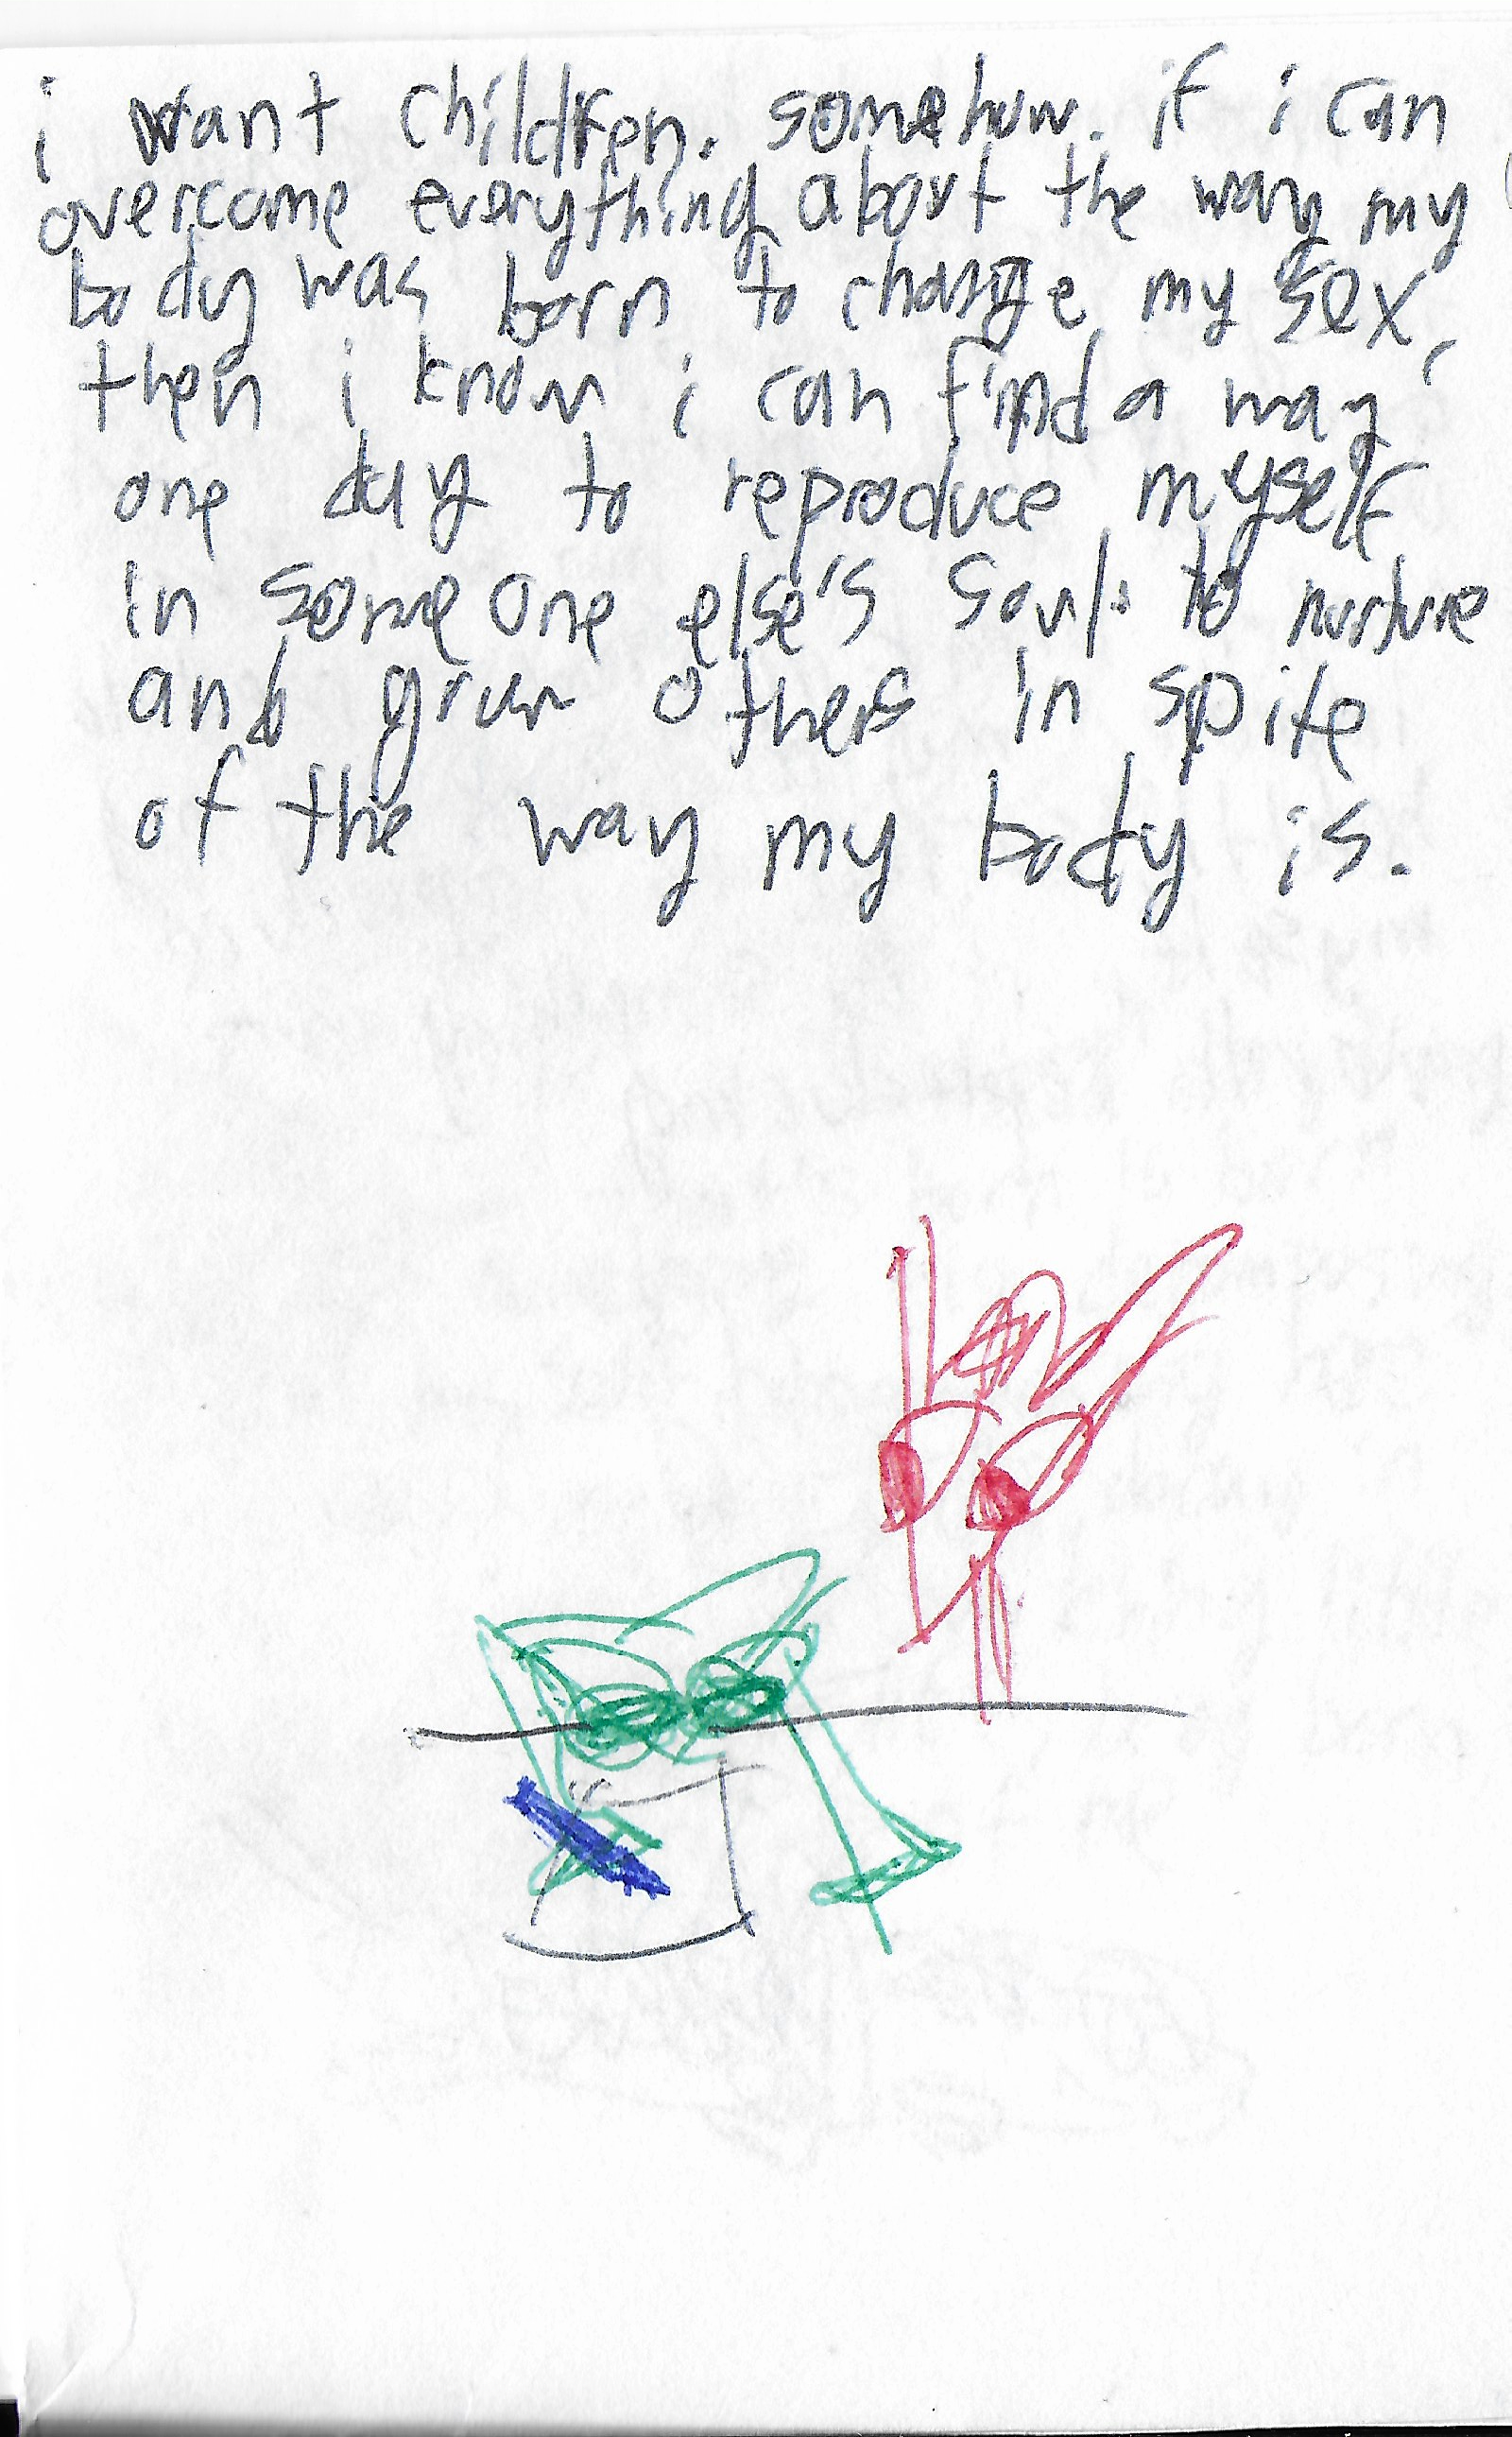 i want children. somehow. if i can
overcome everything about the way my
body was born to change my sex,
then i know i can find a way
one day to reproduce myself
in someone else's soul: to nurture
and grow others in spite
of the way my body is.